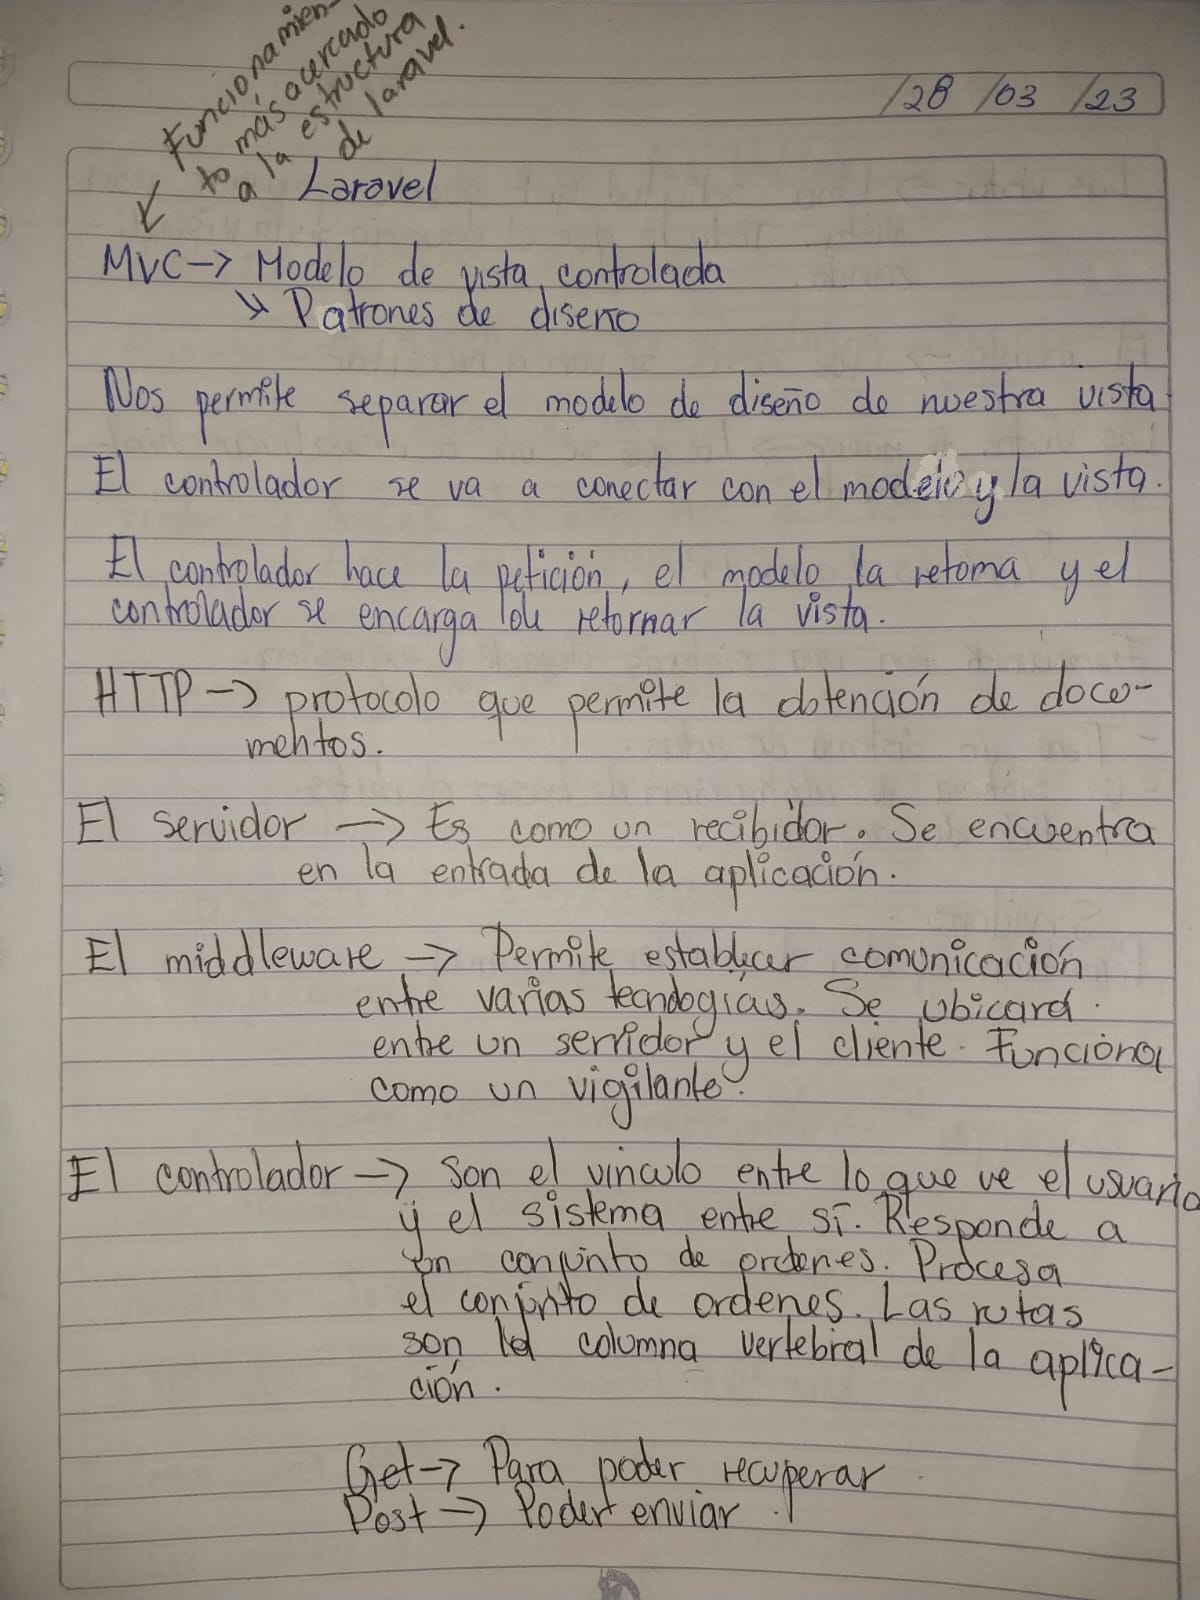 Funcionamien-
to más acercado
a la estructura
de laravel.
/28 /03 /23
Laravel
MVC → Modelo de vista controlada
↘ Patrones de diseño
Nos permite separar el modelo de diseño de nuestra vista
El controlador se va a conectar con el modelo y la vista.
El controlador hace la petición, el modelo la retoma y el
controlador se encarga de retornar la vista.
HTTP → protocolo que permite la obtención de docu-
mentos.
El servidor → Es como un recibidor. Se encuentra
en la entrada de la aplicación.
El middleware → Permite establecer comunicación
entre varias tecnologías. Se ubicará
entre un servidor y el cliente. Funciona
como un vigilante.
El controlador → Son el vínculo entre lo que ve el usuario
y el sistema entre sí. Responde a
un conjunto de ordenes. Procesa
el conjunto de ordenes. Las rutas
son la columna vertebral de la aplica-
ción.
Get → Para poder recuperar
Post → Poder enviar.